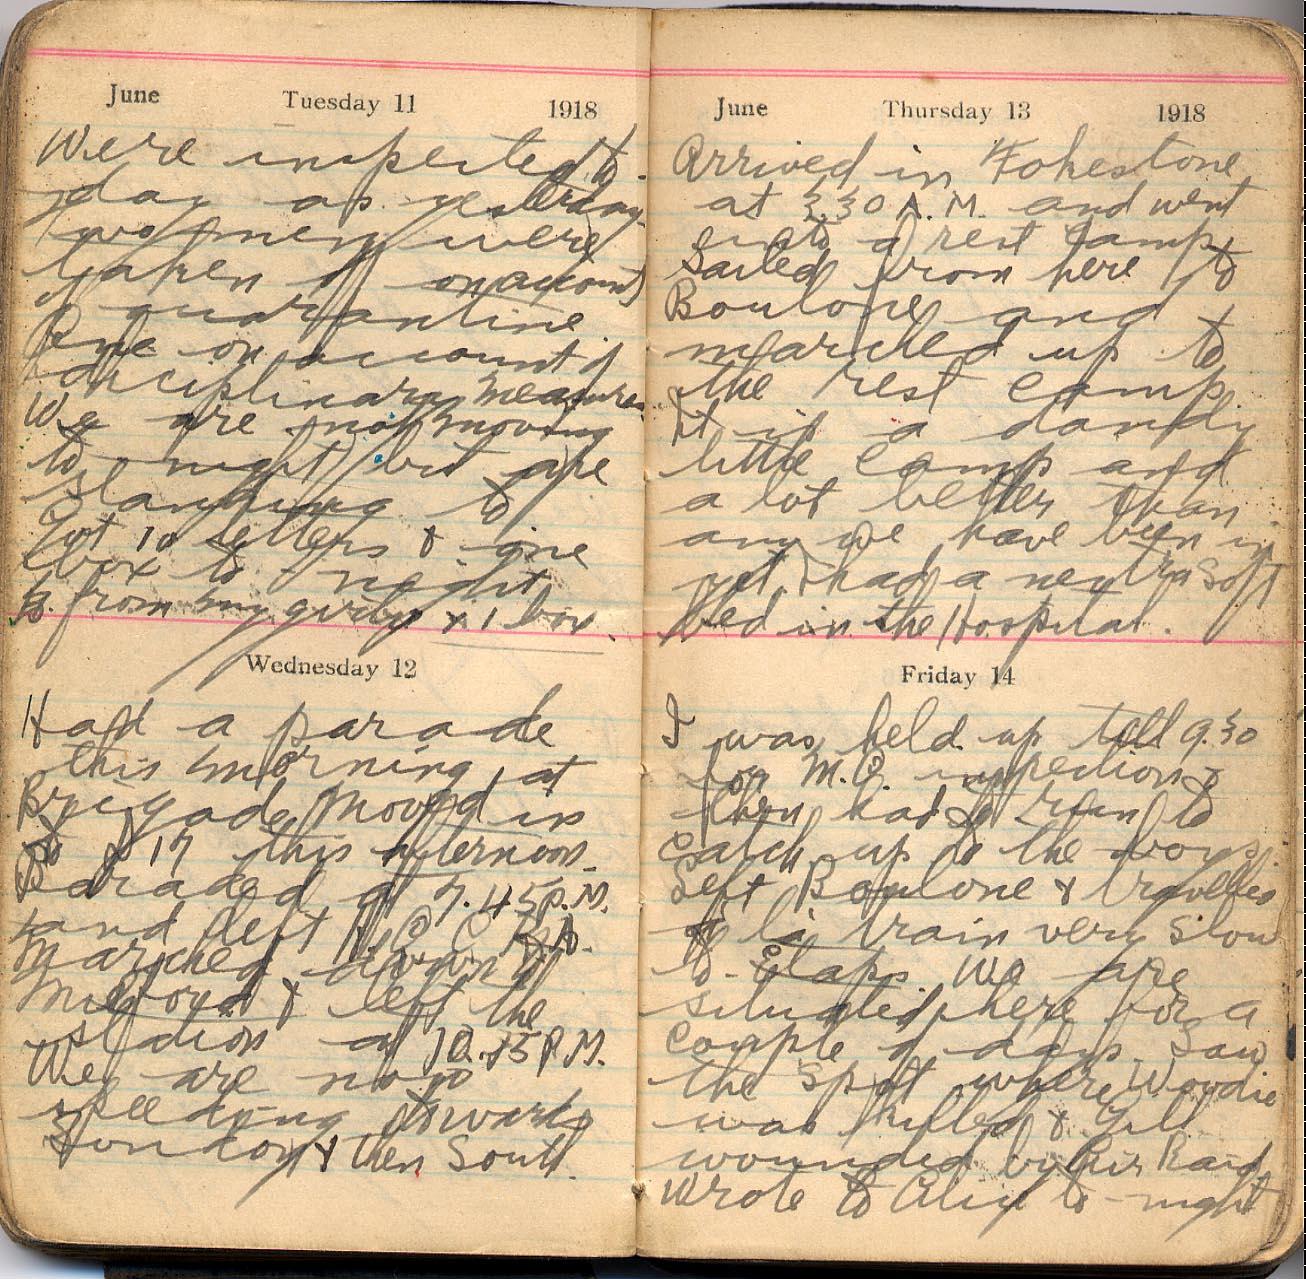 June Tuesday 11 1918
Were inspected to-
day as yesterday
two men were
taken off on account
of quarantine
One on account of
disciplinary measures
We are not moving
to-night but are
standing to
Got 10 letters & one
box to-night
8. from my girly & 1 box.
Wednesday 12
Had a parade
this morning at
Brigade. Moved in
to D 17 this afternoon.
Paraded at 7.45 P.M.
and left
Marched down to
Milford & left the
station at 10.15 P.M.
We are now
speeding towards
London & then South.
June Thursday 13 1918
Arrived in Fokestone
at 3.30 A.M. and went
into a rest camp
Sailed from here to
Boulone and
marched up to
the rest camp.
It is a dandy
little camp and
a lot better than
any we have been in
yet. I had a nex tra soft
bed in the Hospital.
Friday 14
I was held up till 9.30
for M.O. inspection &
then had to run to
catch up to the boys.
Left Boulone & travelled
by train very slow
to Etaps. We are
situated here for a
couple of days. Saw
the spot where Woodie
was killed & Gill
wounded by Air Raid
Wrote to Alix to-night